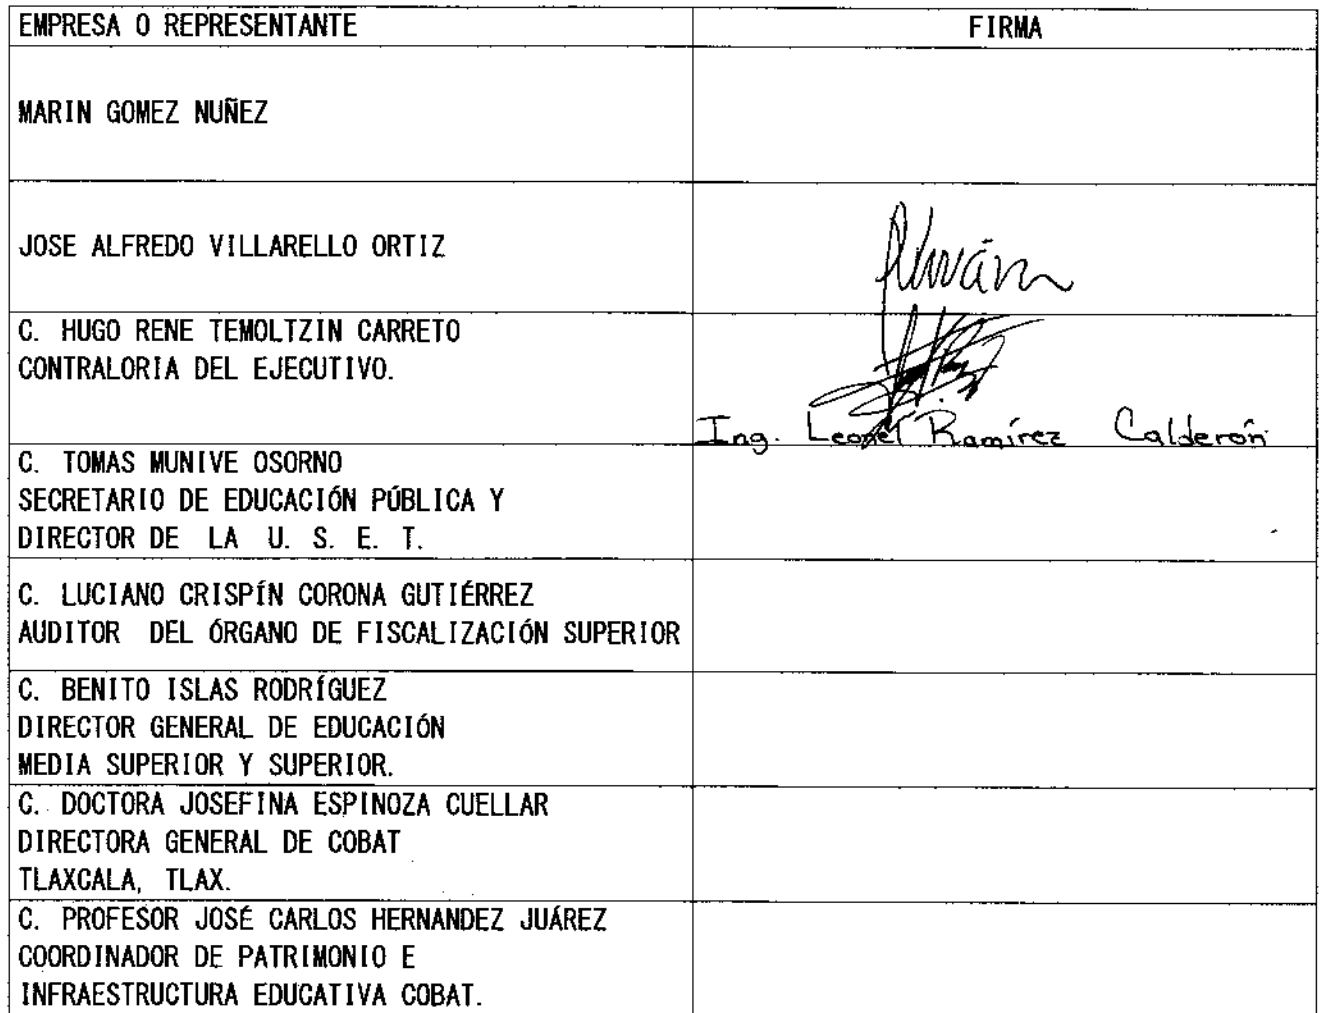 EMPRESA O REPRESENTANTE FIRMA
MARIN GOMEZ NUÑEZ
JOSE ALFREDO VILLARELLO ORTIZ
C. HUGO RENE TEMOLTZIN CARRETO
CONTRALORIA DEL EJECUTIVO.
Ing. Leonel Ramírez Calderón
C. TOMAS MUNIVE OSORNO
SECRETARIO DE EDUCACIÓN PÚBLICA Y
DIRECTOR DE LA U. S. E. T.
C. LUCIANO CRISPÍN CORONA GUTIÉRREZ
AUDITOR DEL ÓRGANO DE FISCALIZACIÓN SUPERIOR
C. BENITO ISLAS RODRÍGUEZ
DIRECTOR GENERAL DE EDUCACIÓN
MEDIA SUPERIOR Y SUPERIOR.
C. DOCTORA JOSEFINA ESPINOZA CUELLAR
DIRECTORA GENERAL DE COBAT
TLAXCALA, TLAX.
C. PROFESOR JOSÉ CARLOS HERNANDEZ JUÁREZ
COORDINADOR DE PATRIMONIO E
INFRAESTRUCTURA EDUCATIVA COBAT.